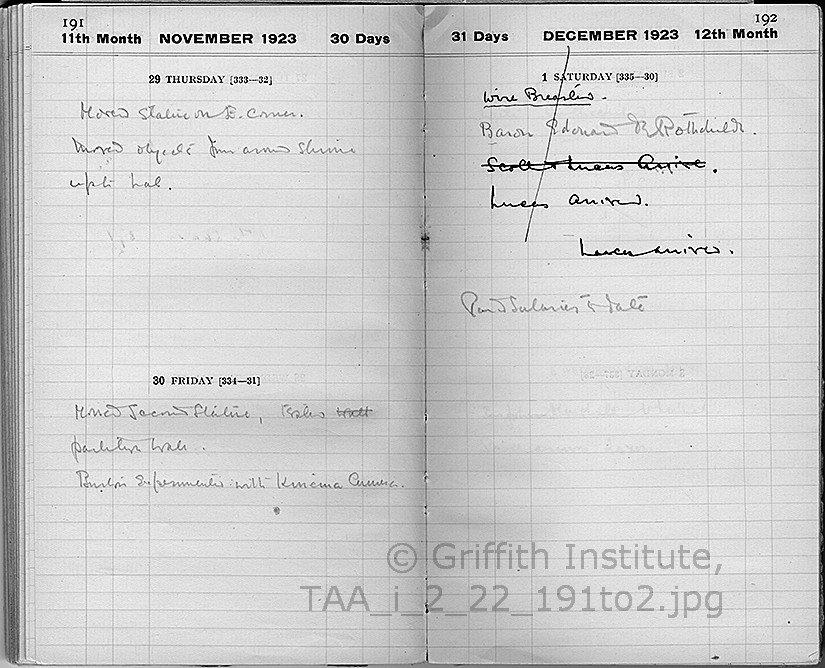 191
11th Month NOVEMBER 1923 30 Days
29 THURSDAY [333—32]
Moved statue on E. corner.
Moved objects from around Shrine
up to Lab.
30 FRIDAY [334—31]
Moved Second Statue, wall
partition wall.
Burton Experimented with Kinema Camera.
192
31 Days DECEMBER 1923 12th Month
1 SATURDAY [335—30]
Wire Breasted.
Baron Edouard Rothschild.
Scott & Lucas Arrive.
Lucas arrived.
Lucas arrived.
Paid Salaries to date
© Griffith Institute,
TAA_i_2_22_191to2.jpg